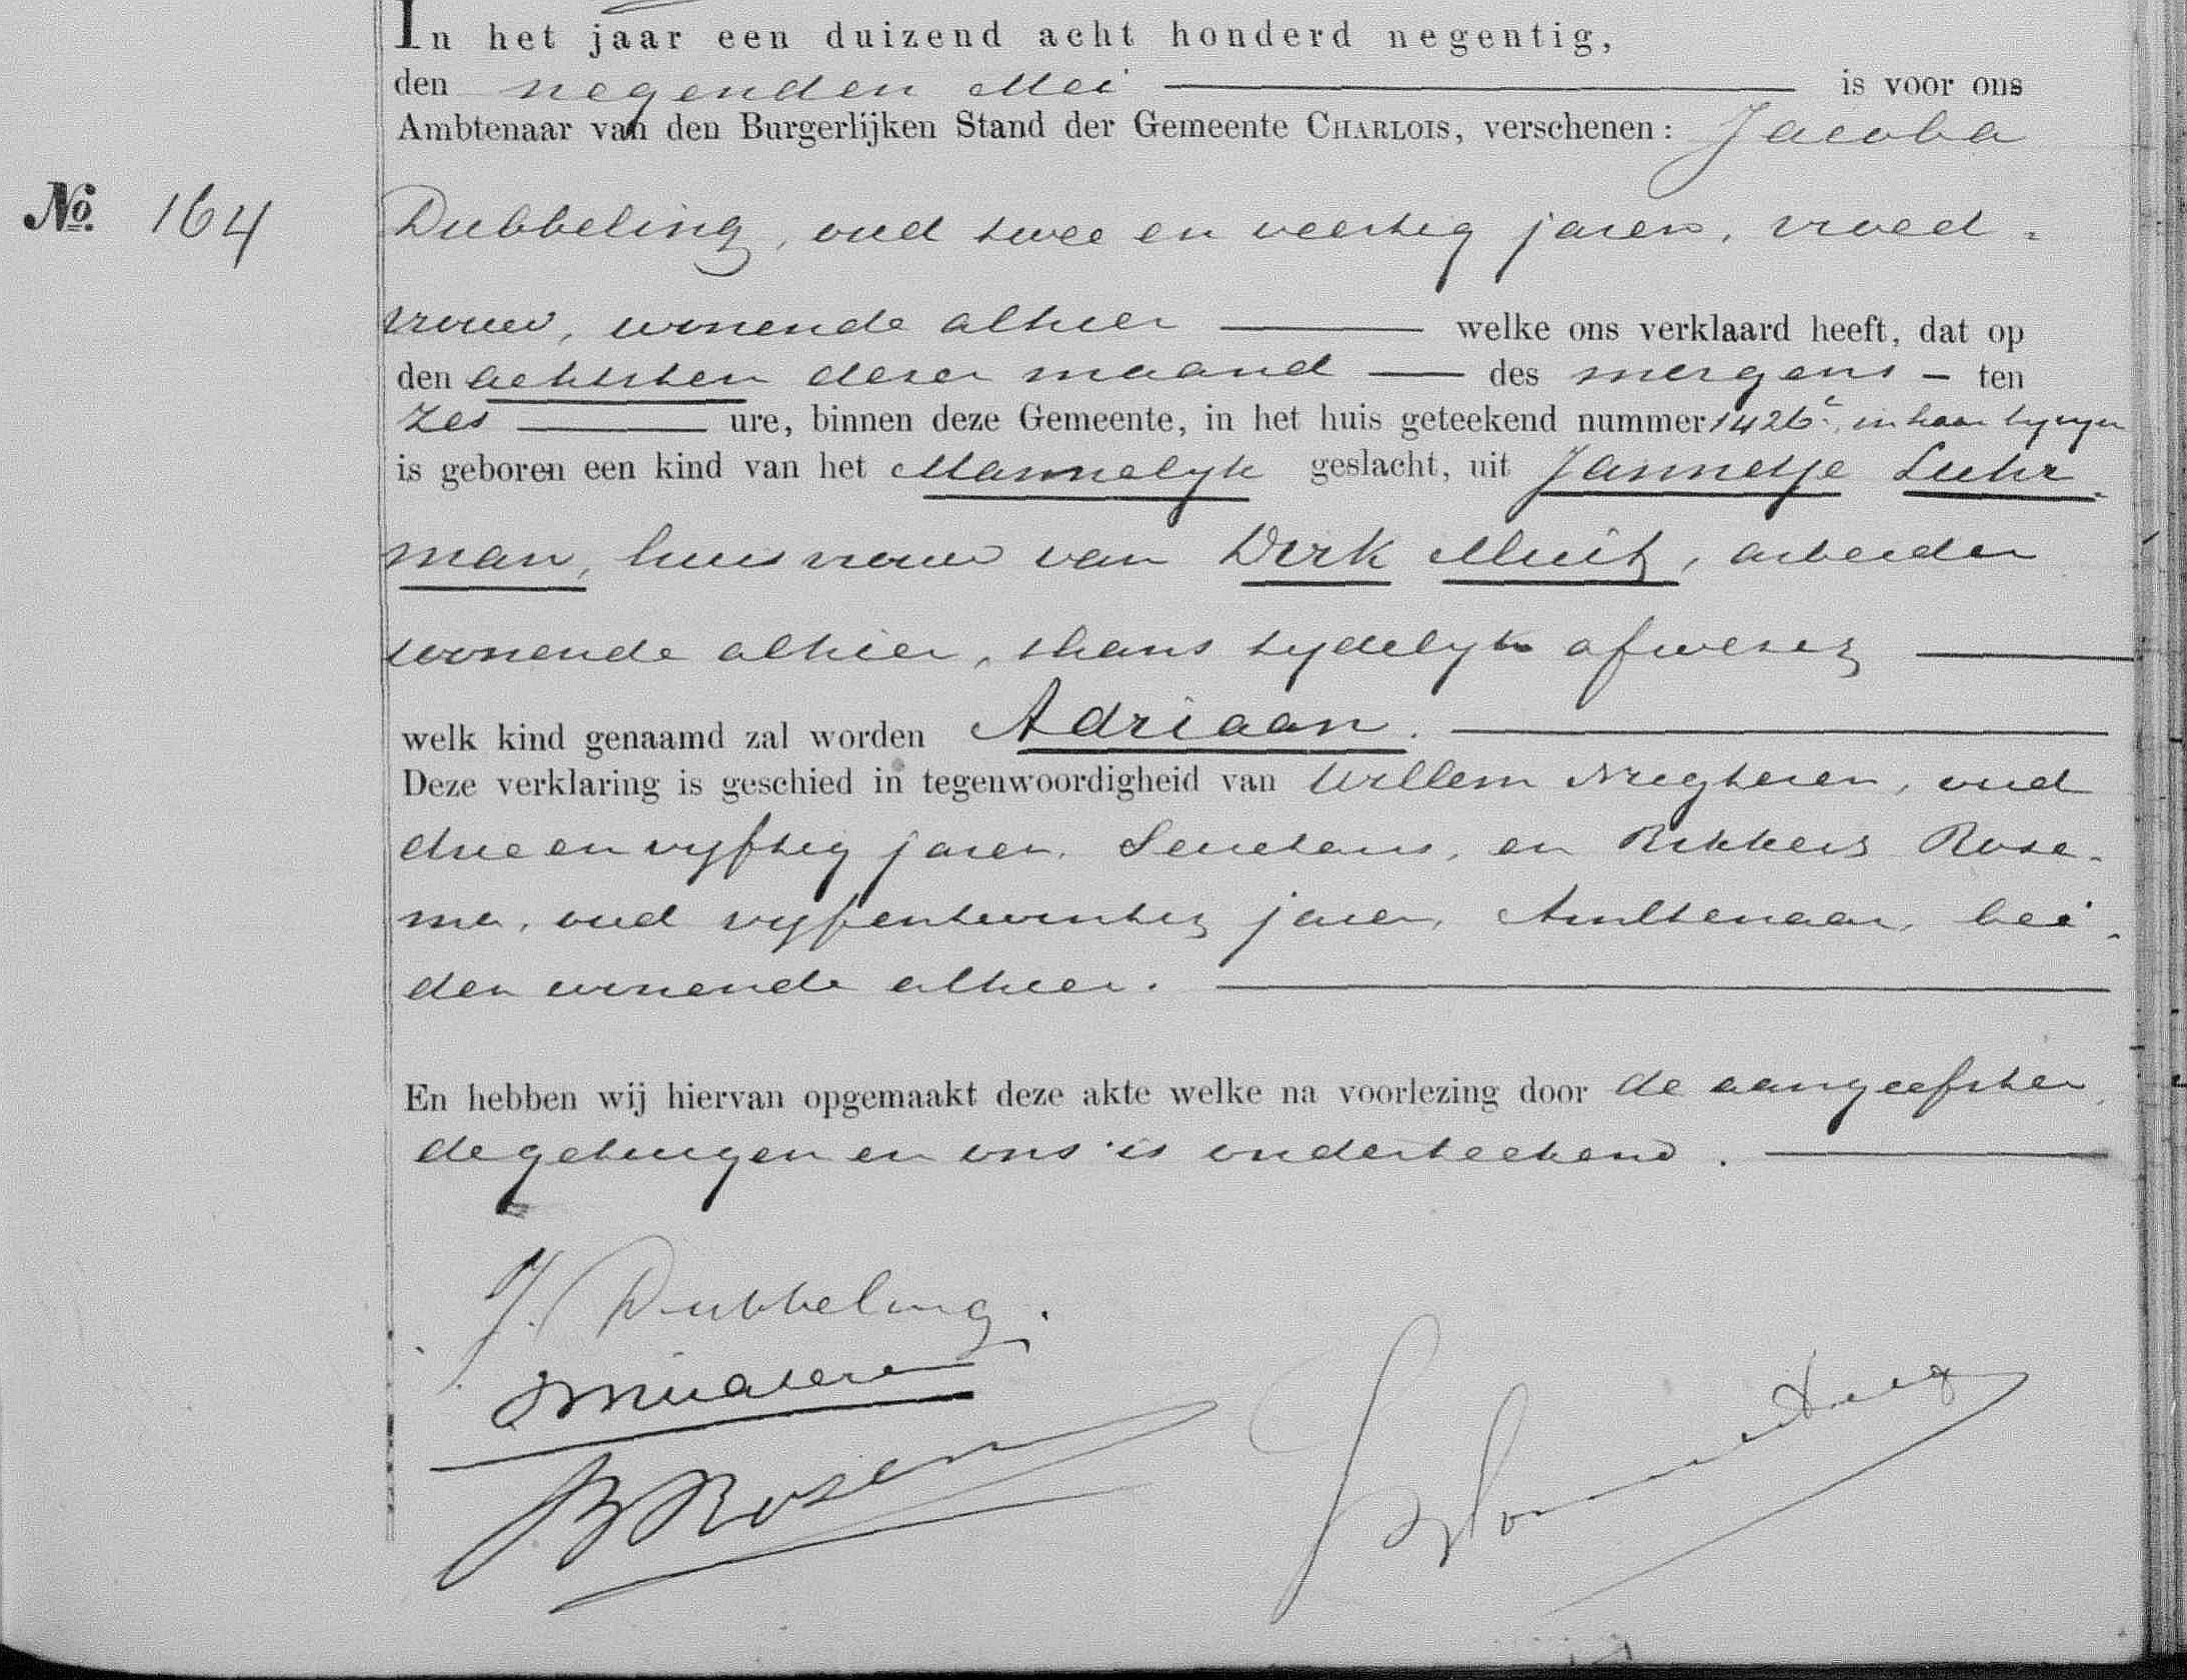 In het jaar een duizend acht honderd negentig,
den negenden Mei is voor ons
Ambtenaar van den Burgerlijken Stand der Gemeente CHARLOIS, verschenen: Jacoba
No. 164
Dubbeling, oud twee en veertig jaren, vroed-
vrouw, wonende alhier welke ons verklaard heeft, dat op
den achtsten dezer maand des morgens - ten
zes ure, binnen deze Gemeente, in het huis geteekend nummer 1426c, in haar bijzijn
is geboren een kind van het Mannelyk geslacht, uit Jannetje Luhr-
man, huisvrouw van Dirk Muis, arbeider
wonende alhier, thans tydelyk afwezig
welk kind genaamd zal worden Adriaan.
Deze verklaring is geschied in tegenwoordigheid van Willem oud
drie en vyftig jaren, Secretaris, en Rikkers Rose-
ma, oud vyfentwintig jaren, Ambtenaar, bei-
den wonende alhier.
En hebben wij hiervan opgemaakt deze akte welke na voorlezing door de aangeefster,
de getuigen en ons is onderteekend.
J. Dubbeling.